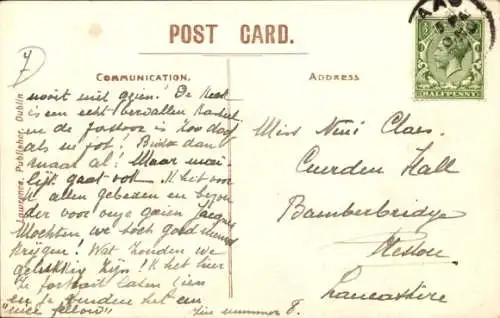 POST CARD.
COMMUNICATION.
ADDRESS
Lawrence, Publisher, Dublin
7
HALFPENNY
nooit uit gezien! De Kerk
is een echt vervallen
en de pastoor is zoo
als
maal al! Maar
gaat ook. Ik het voor
U allen gebeden en bijzon
der voor onze Jacques
Mochten we toch goed nieuws
krijgen! Wat zouden we
gelukkig zijn! Ik het hier
Je portrait laten zien
en ze vonden het een
"nice fellow"
Zie nummer 8.
Miss Claes
Cuerden Hall
Bamberbridge
Preston
Lancashire